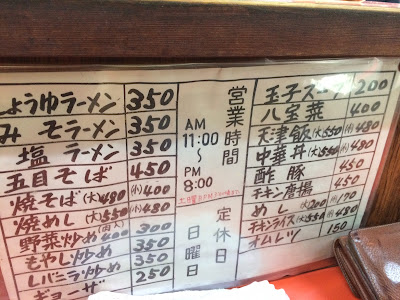 しょうゆラーメン 350
みそラーメン 350
塩ラーメン 350
五目そば 450
焼そば(大)480 (小)400
焼めし(大)550 (小)480
野菜炒め 400 300
もやし炒め 350
レバニラ炒め 350
ギョーザ 250
営業時間
AM
11:00
~
PM
8:00
定休日
日曜日
玉子スープ 200
八宝菜 400
天津飯(大)550 (小)480
中華丼(大)550 (小)480
酢豚 450
チキン唐揚 450
めし(大)200 170
チキンライス(大)550 (小)480
オムレツ 150